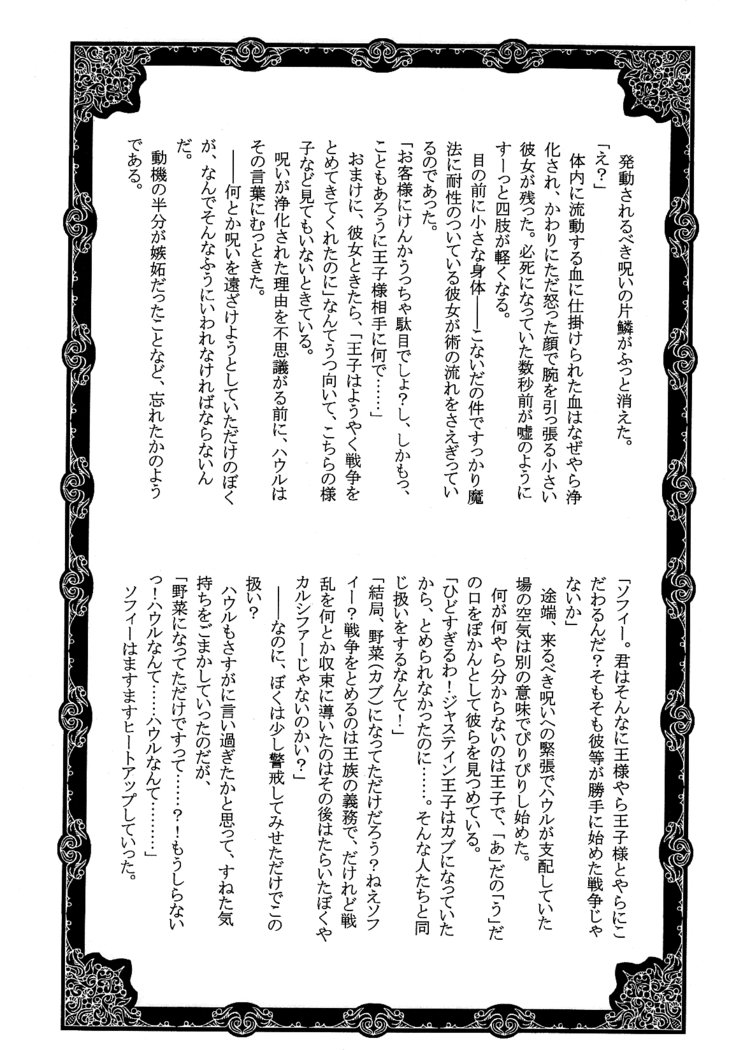 発動されるべき呪いの片鱗がふっと消えた。
「え？」
　体内に流動する血に仕掛けられた血はなぜやら浄
化され、かわりにただ怒った顔で腕を引っ張る小さい
彼女が残った。必死になっていた数秒前が嘘のように
すーっと四肢が軽くなる。
　目の前に小さな身体――こないだの件ですっかり魔
法に耐性のついている彼女が術の流れをさえぎってい
るのであった。
「お客様にけんかうっちゃ駄目でしょ？し、しかもっ、
こともあろうに王子様相手に何で……」
　おまけに、彼女ときたら、「王子はようやく戦争を
とめてきてくれたのに」なんてうつ向いて、こちらの様
子など見てもいないときている。
　呪いが浄化された理由を不思議がる前に、ハウルは
その言葉にむっときた。
　――何とか呪いを遠ざけようとしていただけのぼく
が、なんでそんなふうにいわれなければならないん
だ。
　動機の半分が嫉妬だったことなど、忘れたかのよう
である。
「ソフィー。君はそんなに王様やら王子様とやらにこ
だわるんだ？そもそも彼等が勝手に始めた戦争じゃ
ないか」
　途端、来るべき呪いへの緊張でハウルが支配していた
場の空気は別の意味でぴりぴりし始めた。
　何が何やら分からないのは王子で、「あ」だの「う」だ
の口をぽかんとして彼らを見つめている。
「ひどすぎるわ！ジャスティン王子はカブになっていた
から、とめられなかったのに……。そんな人たちと同
じ扱いをするなんて！」
「結局、野菜（カブ）になってただけだろう？ねえソフ
ィー？戦争をとめるのは王族の義務で、だけれど戦
乱を何とか収束に導いたのはその後はたらいたぼくや
カルシファーじゃないのかい？
　――なのに、ぼくは少し警戒してみせただけでこの
扱い？
　ハウルもさすがに言い過ぎたかと思って、すねた気
持ちをごまかしていったのだが、
「野菜になってただけですって……？！もうしらない
っ！ハウルなんて……ハウルなんて………」
　ソフィーはますますヒートアップしていった。